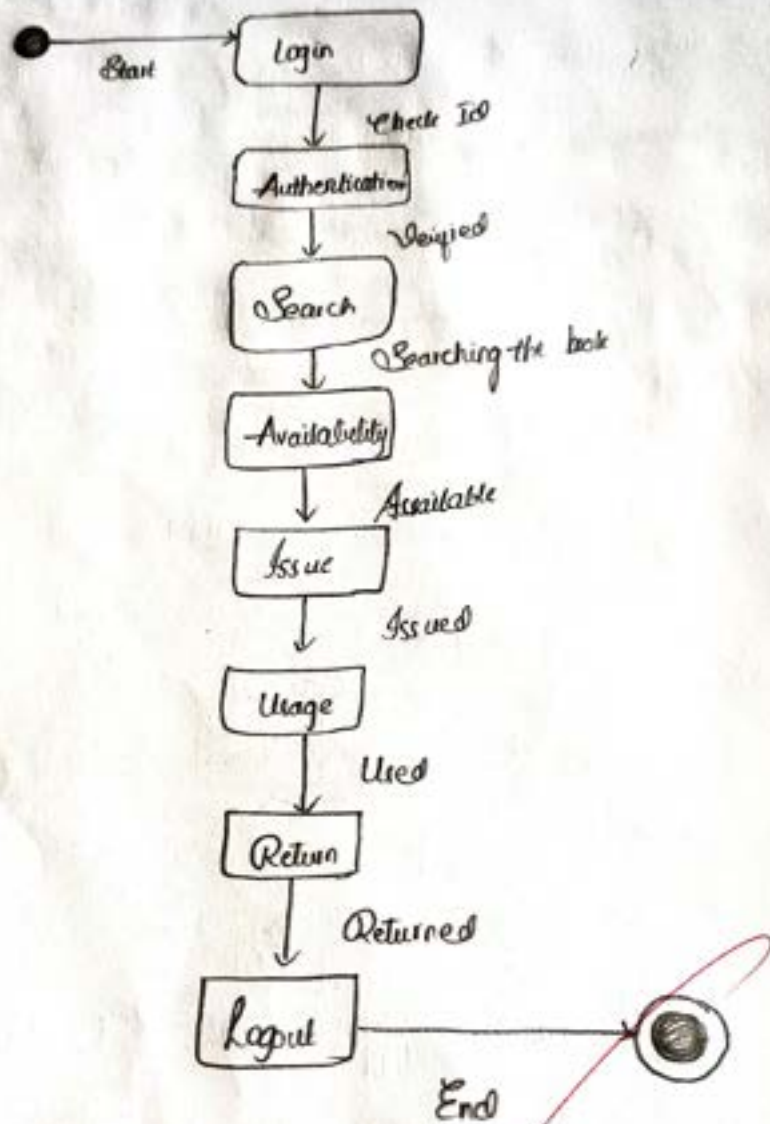 Start
Login
Check Id
Authentication
Verified
Search
Searching the book
Availability
Available
Issue
Issued
Usage
Used
Return
Returned
Logout
End